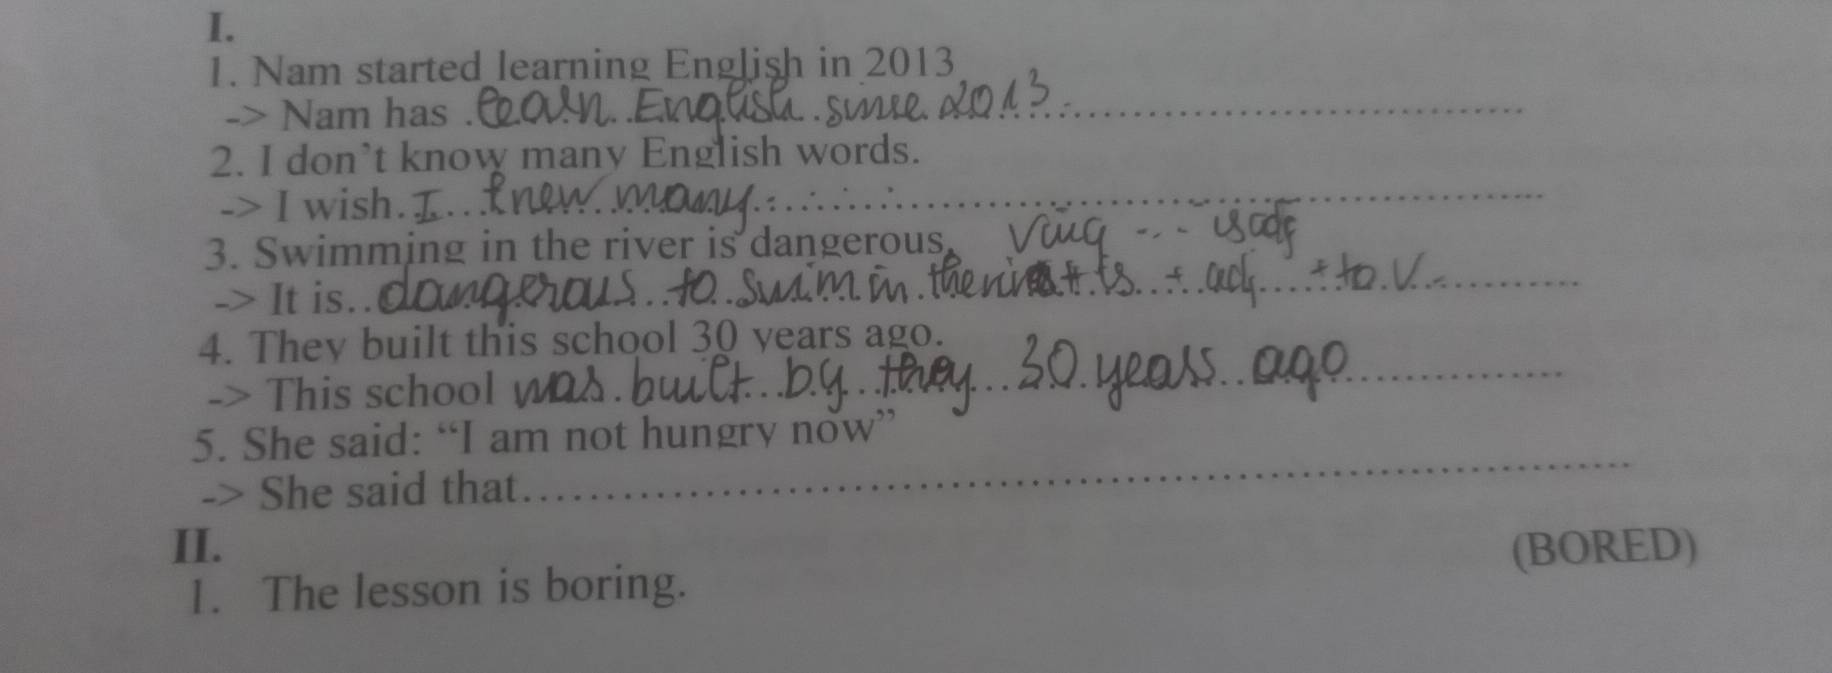 I.
1. Nam started learning English in 2013
-> Nam has learn English since 2013
2. I don't know many English words.
-> I wish I knew many
3. Swimming in the river is dangerous. Ving ... is adj
-> It is dangerous to swim in the It is + adj + to V
4. They built this school 30 years ago.
-> This school was built by they 30 years ago
5. She said: “I am not hungry now”
-> She said that
II.
(BORED)
1. The lesson is boring.